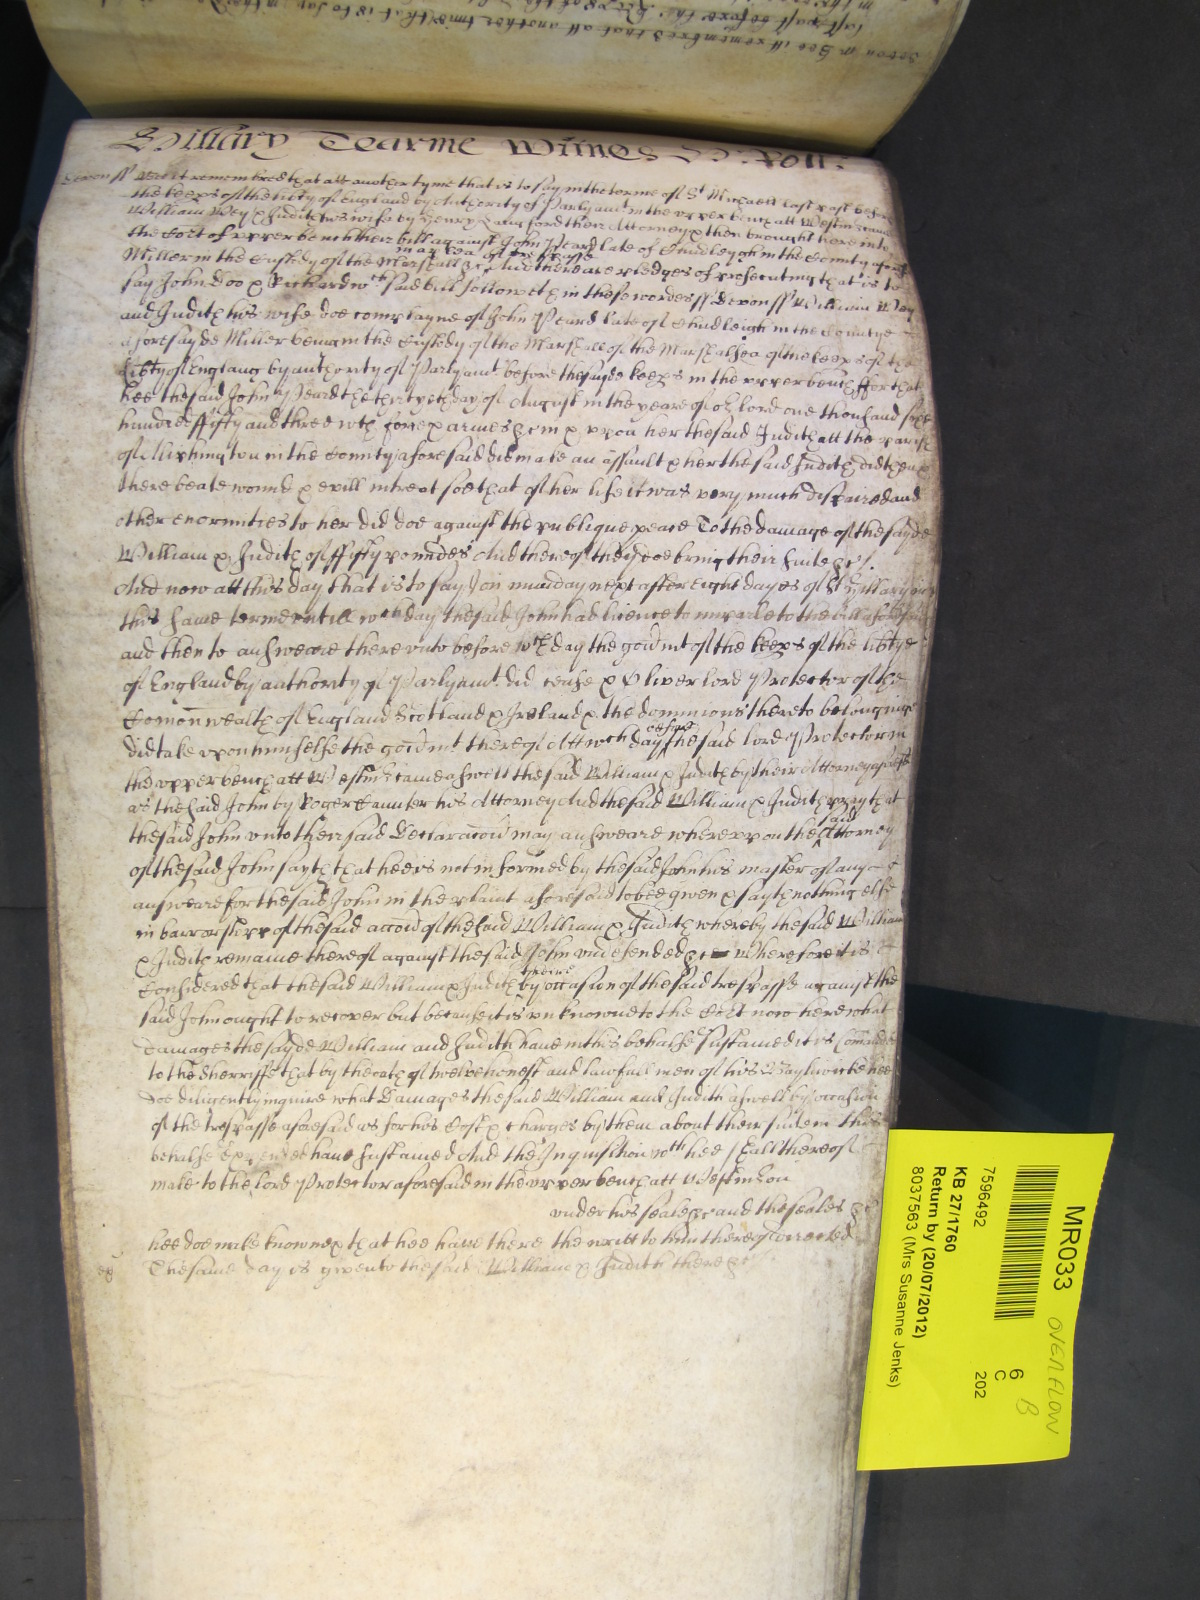 Hillary Tearme Witnes H: Roll:
Devon ss Bee it remembred that att another tyme that is to say in the terme of St Michaell last past before
the keeps of the libty of England by Authority of Parlyamt in the upper bench att Westm came
William Wey & Judith his wife by Henry Langford their Attorney & then brought here into
the Cort of upper bench their bill against John Peard late of Chudleigh in the County aforesd
Miller in the Custody of the Marshall &c of trespasse And there are pledges of prosecuting that is to
say John Doo & Richard wch said bill followeth in these wordes ss Devon ss William Wey
and Judith his wife doe complayne of John Peard late of Chudleigh in the Countye
aforesayde Miller being in the Custody of the Marshall of the Marshalsea of the keeps of the
Libty of England by authority of Parlyamt before the sayde keeps in the upper bench ffor that
hee the said John Peard the thirtyeth day of August in the yeare of or lord one thousand sixe
hundred ffifty and three wth force & armes &c in & upon her the said Judith att the parish
of in the County aforesaid did make an assault & her the said Judith did then &
there beate wound & evill intreat soe that of her life it was very much dispaired and
other enormities to her did doe against the publique peace To the damage of the sayde
William & Judith of ffifty poundes And thereof they doe bring their suite &c
And now att this day that is to say on munday next after eight dayes of St Hillary in
this same terme untill wch day the said John had licence to imparle to the bill aforesaid
and then to answeare thereunto before wch day the govmt of the keeps of the libtye
of England by authority of Parlyamt did cease & Oliver lord Protector of the
Comonwealth of England Scotland & Ireland & the dominions thereto belonging
did take upon himselfe the govmt thereof Att wch day before the said lord Protector in
the upper bench att Westm came aswell the said William & Judith by their Attorney aforesd
as the said John by Roger Caunter his Attorney And the said William & Judith pray that
the said John unto their said Declaracon may answeare whereupon the said Attorney
of the said John sayth that hee is not informed by the said John his master of any
answeare for the said John in the plaint aforesaid to bee given & sayth nothing else
in barr or stopp of the said accon of the said William & Judith whereby the said William
& Judith remaine thereof against the said John undefended &c Wherefore it is
Considered that the said William & Judith theire by occasion of the said trespasse against the
said John ought to recover but because it is unknowne to the Cort now here what
damages the sayde William and Judith have in this behalfe sustained it is Comanded
to the Sherriffe that by the oath of twelve honest and lawfull men of his Baylywicke hee
doe diligently inquire what Damages the said William and Judith aswell by occasion
of the trespasse aforesaid as for his Cost & charges by them about their suite in this
behalfe expended have sustained And the Inquisition wch hee shall thereof
make to the lord Protector aforesaid in the upper bench att Westm on
under his seale &c and the seales &c
hee doe make knowne & that hee have there the writt to him thereof directed
The same day is given to the said William & Judith there &c
MR033
OVERFLOW
B
6
C
202
7596492
KB 27/1760
Return by (20/07/2012)
8037563 (Mrs Susanne Jenks)